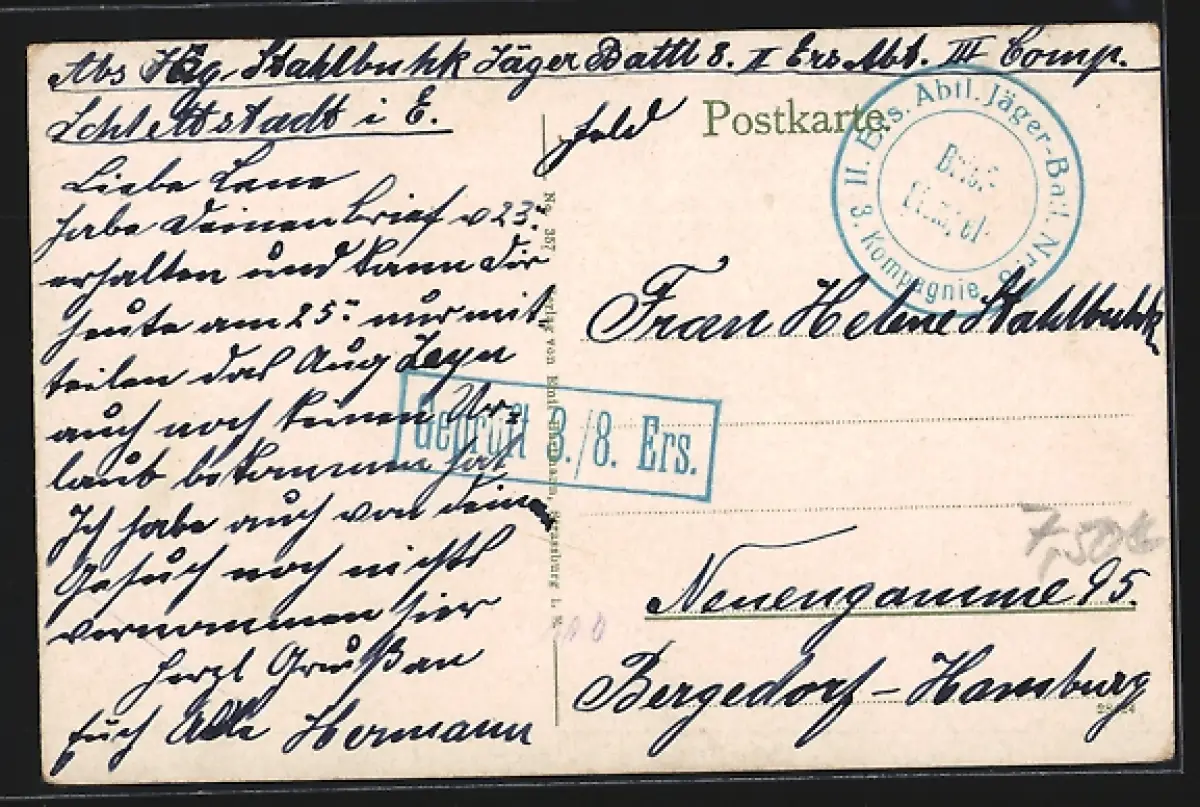 Abs Jäg. Stahlbuhk Jäger Battl 8. II Ers Abt. III Comp.
Schlettstadt i E.
Liebe Lene
habe deinen Brief v 23.
erhalten und kann dir
heute am 25. nur mit,
teilen das Aug
auch noch keinen Ur,
laub bekommen hat
Ich habe auch von deinem
Gesuch noch nichts
vernommen hier
Herzl Gruß an
Euch Alle Hermann
Feld
Postkarte.
II. Ers. Abtl. Jäger-Batl. Nr. 8
3. Kompagnie
Brief-
Stempel.
Frau Helene Stahlbuhk
Geprüft 3./8. Ers.
Neuengamme 95.
Bergedorf - Hamburg
No. 357
Verlag von Strassburg i. E.
7,50